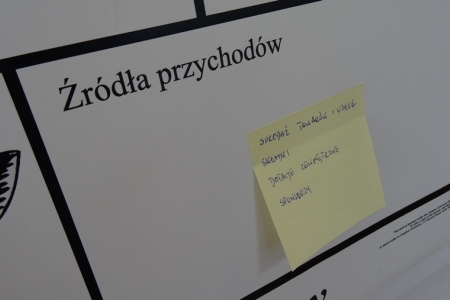 Źródła przychodów
SPRZEDAŻ TOWARÓW I USŁUG
SKŁADKI
DOTACJE ZEWNĘTRZNE
SPONSORZY